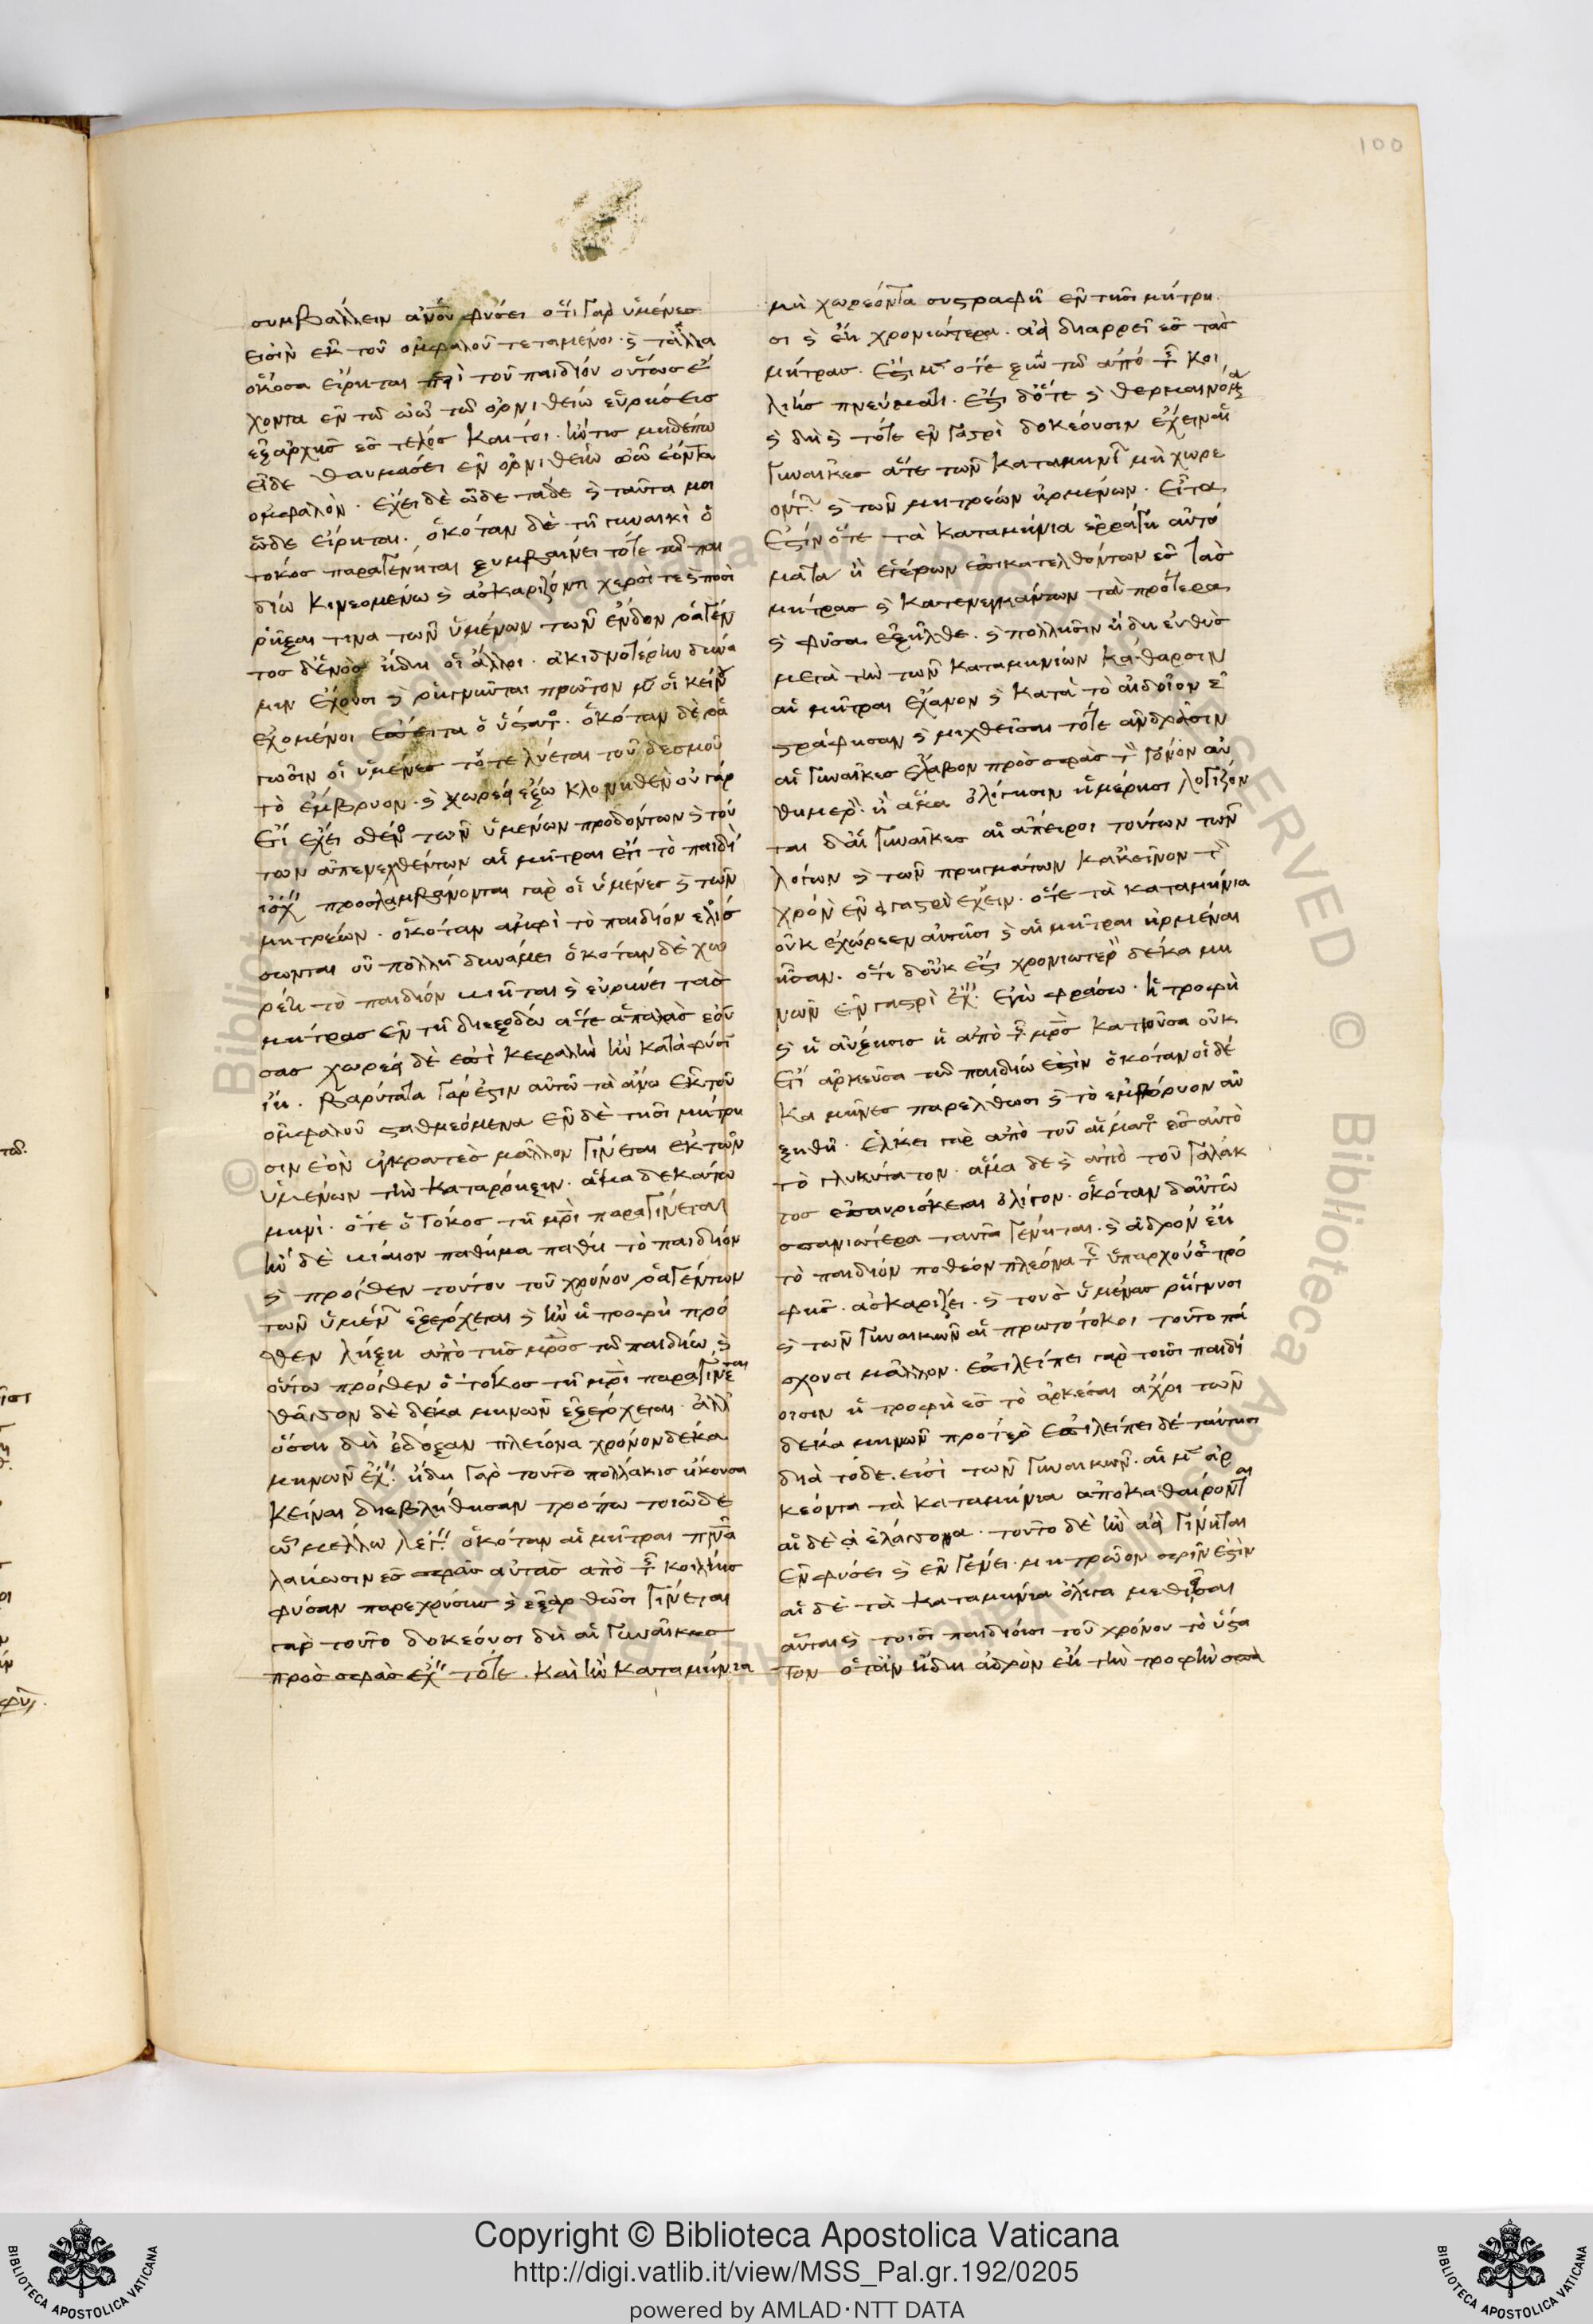 100
συμβάλλειν ἀνου φύσει ὅτι γὰρ ὑμένες
εἰσὶν ἐκ τοῦ ὀμφαλοῦ τεταμένοι. ϛ τἄλλα
ὁκόσα εἴρηται περὶ τοῦ παιδίου οὕτως ἔ
χοντα ἐν τῶ ὠῶ τῶ ὀρνιθείω εὑρήσεις
ἐξ ἀρχῆς ἐς τέλος καίτοι. ἤν τις μηδέπω
εἶδε θαυμάσει ἐν ὀρνιθείω ὠῶ ἐόντα
ὀμφαλόν. ἔχει δὲ ὧδε τάδε ϛ ταῦτά μοι
ὧδε εἴρηται. ὁκόταν δὲ τῆ γυναικὶ ὁ
τόκος παραγένηται ξυμβαίνει τότε τῶ παι
δίω κινεομένω ϛ ἀσκαρίζοντι χερσί τε ϛ ποσὶ
ῥῆξαι τινα τῶν ὑμένων τῶν ἔνδον ῥαγέν
τος δ' ἑνὸς ἤδη οἱ ἄλλοι. ἀκιδνοτέρην δύνα
μιν ἔχουσι ϛ ῥήγνυνται πρῶτον μὲν οἱ κείν
ἐχομένοι ἔπειτα ὁ ὕστατ. ὁκόταν δὲ ῥα
γῶσιν οἱ ὑμένες τότε λύεται τοῦ δεσμοῦ
τὸ ἔμβρυον. ϛ χωρέει ἔξω κλονηθὲν οὐ γὰρ
ἔτι ἔχει σθέν τῶν ὑμένων προδόντων ϛ τού
των ἀπενεχθέντων αἱ μῆτραι ἔτι τὸ παιδί
ἰσχ προσλαμβάνονται γὰρ οἱ ὑμένες ϛ τῶν
μητρέων. ὁκόταν ἀμφὶ τὸ παιδίον ἑλιχ
σωνται οὐ πολλῆ δυνάμει ὁκόταν δὲ χω
ρέη τὸ παιδίον βιῆται ϛ εὐρύνει τὰς
μήτρας ἐν τῆ διεξόδω ἅτε ἁπαλὰς ἐού
σας χωρέει δὲ ἐπὶ κεφαλὴν ἢν κατὰ φύσι
ἴη. βαρύτατα γάρ ἐστιν αὐτῶ τὰ ἄνω ἐκ τοῦ
ὀμφαλοῦ σταθμεόμενα ἐν δὲ τῆσι μήτρη
σιν ἐὸν ἐγκρατὲς μᾶλλον γίνεται ἐκ τῶν
ὑμένων τὴν κατάρρηξιν. ἅμα δεκάτω
μηνὶ. ὅτε ὁ τόκος τῆ μρὶ παραγίνεται
ἢν δὲ βίαιον πάθημα πάθη τὸ παιδίον
ϛ πρόσθεν τούτου τοῦ χρόνου ῥαγέντων
τῶν ὑμέν ἐξέρχεται ϛ ἢν ἡ τροφὴ πρό
σθεν λήξη ἀπὸ τῆς μρὸς τῶ παιδίω ϛ
οὕτω πρόσθεν ὁ τόκος τῆ μρὶ παραγίνεται
θᾶσσον δὲ δέκα μηνῶν ἐξέρχεται. ἀλλ
ὅσαι δὴ ἔδοξαν πλείονα χρόνον δέκα
μηνῶν ἔχ. ἤδη γὰρ τοῦτο πολλάκις ἤκουσα
κεῖναι διεβλήθησαν τρόπω τοιῶδε
ὧ μέλλω λέγ. ὁκόταν αἱ μῆτραι πνα
λαβωσιν ἐς σφὰς αὐτὰς ἀπὸ τ κοιλίης
φύσαν παρεχούσης ϛ ἐξαρθῶσι γίνεται
γὰρ τοῦτο δοκέουσι δὴ αἱ γυναῖκες
πρὸς σφᾶς ἔχ τότε. καὶ ἢν καταμήνια
μὴ χωρέοντα συστραφῆ ἐν τῆσι μήτρη
σι ϛ ἔη χρονιώτερα. ἀεὶ διαρρεῖ ἐς τὰς
μήτρας. ἔστι μὲν ὅτε ξὺν τῶ ἀπὸ τ κοι
λίης πνεύματι. ἔστι δ' ὅτε ϛ θερμαινόμενα
ϛ δὴ ϛ τότε ἐν γαστρὶ δοκέουσιν ἔχειν αἱ
γυναῖκες ἅτε τῶν καταμηνι μὴ χωρε
όντ. ϛ τῶν μητρέων ἠρμένων. εἶτα
ἔστιν ὅτε τὰ καταμήνια ἐρράγη αὐτό
ματα ἢ ἑτέρων ἐπικατελθόντων ἐς τὰς
μήτρας ϛ κατενεγκάντων τὰ πρότερα
ϛ φῦσα ἐξῆλθε. ϛ πολλῆσιν ἤδη εὐθὺς
μετὰ τὴν τῶν καταμηνίων κάθαρσιν
αἱ μῆτραι ἔχανον ϛ κατὰ τὸ αἰδοῖον ἐ
στράφησαν ϛ μιχθεῖσαι τότε ἀνδράσιν
αἱ γυναῖκες ἔλαβον πρὸς σφᾶς τ γόνον αὐ
θημερ. ἢ ἅμα ὀλίγησιν ἡμέρησι λογίζον
ται δ' αἱ γυναῖκες αἱ ἄπειροι τούτων τῶν
λόγων ϛ τῶν πρηγμάτων κἀκεῖνον τ
χρόν ἐν γαστρὶ ἔχειν. ὅτε τὰ καταμήνια
οὐκ ἐχώρεεν αὐτῆσι ϛ αἱ μῆτραι ἠρμέναι
ἦσαν. ὅτι δ' οὐκ ἔστι χρονιώτερ δέκα μη
νῶν ἐν γαστρὶ ἔχ. ἐγὼ φράσω. ἡ τροφὴ
ϛ ἡ αὔξησις ἡ ἀπὸ τ μρὸς κατιοῦσα οὐκ
ἔτι ἀρκεῦσα τῶ παιδίω ἐστὶν ὁκόταν οἱ δέ
κα μῆνες παρέλθωσι ϛ τὸ ἔμβρυον αὐ
ξηθῆ. ἕλκει γὰρ ἀπὸ τοῦ αἵματ ἐς αὐτὸ
τὸ γλυκύτατον. ἅμα δὲ ϛ ἀπὸ τοῦ γάλακ
τος ἐπαυρίσκεται ὀλίγον. ὁκόταν δ' αὐτῶ
σπανιώτερα ταῦτα γένηται. ϛ ἁδρὸν ἔη
τὸ παιδίον ποθέον πλέονα τ ὑπαρχούσ τρο
φῆς. ἀσκαρίζει. ϛ τοὺς ὑμένας ῥήγνυσι
ϛ τῶν γυναικῶν αἱ πρωτοτόκοι τοῦτο πά
σχουσι μᾶλλον. ἐπιλείπει γὰρ τοῖσι παιδί
οισιν ἡ τροφὴ ἐς τὸ ἀρκέσαι ἄχρι τῶν
δέκα μηνῶν πρότερ ἐπιλείπει δὲ ταύτησι
διὰ τόδε. εἰσὶ τῶν γυναικῶν. αἱ μὲν ἀρ
κέοντα τὰ καταμήνια ἀποκαθαίρονται
αἱ δὲ ἐλάσσονα. τοῦτο δὲ ἢν ἀεὶ γίνηται
ἐν φύσει ϛ ἐν γένει. μητρῶον σφίν ἐστὶν
αἱ δὲ τὰ καταμήνια ὀλίγα μεθιεῖσαι
αὗται ϛ τοῖσι παιδίοισι τοῦ χρόνου τὸ ὕστα
τον ὅταν ἤδη ἁδρὸν ἔη τὴν τροφὴν σπα
Copyright © Biblioteca Apostolica Vaticana
http://digi.vatlib.it/view/MSS_Pal.gr.192/0205
powered by AMLAD·NTT DATA